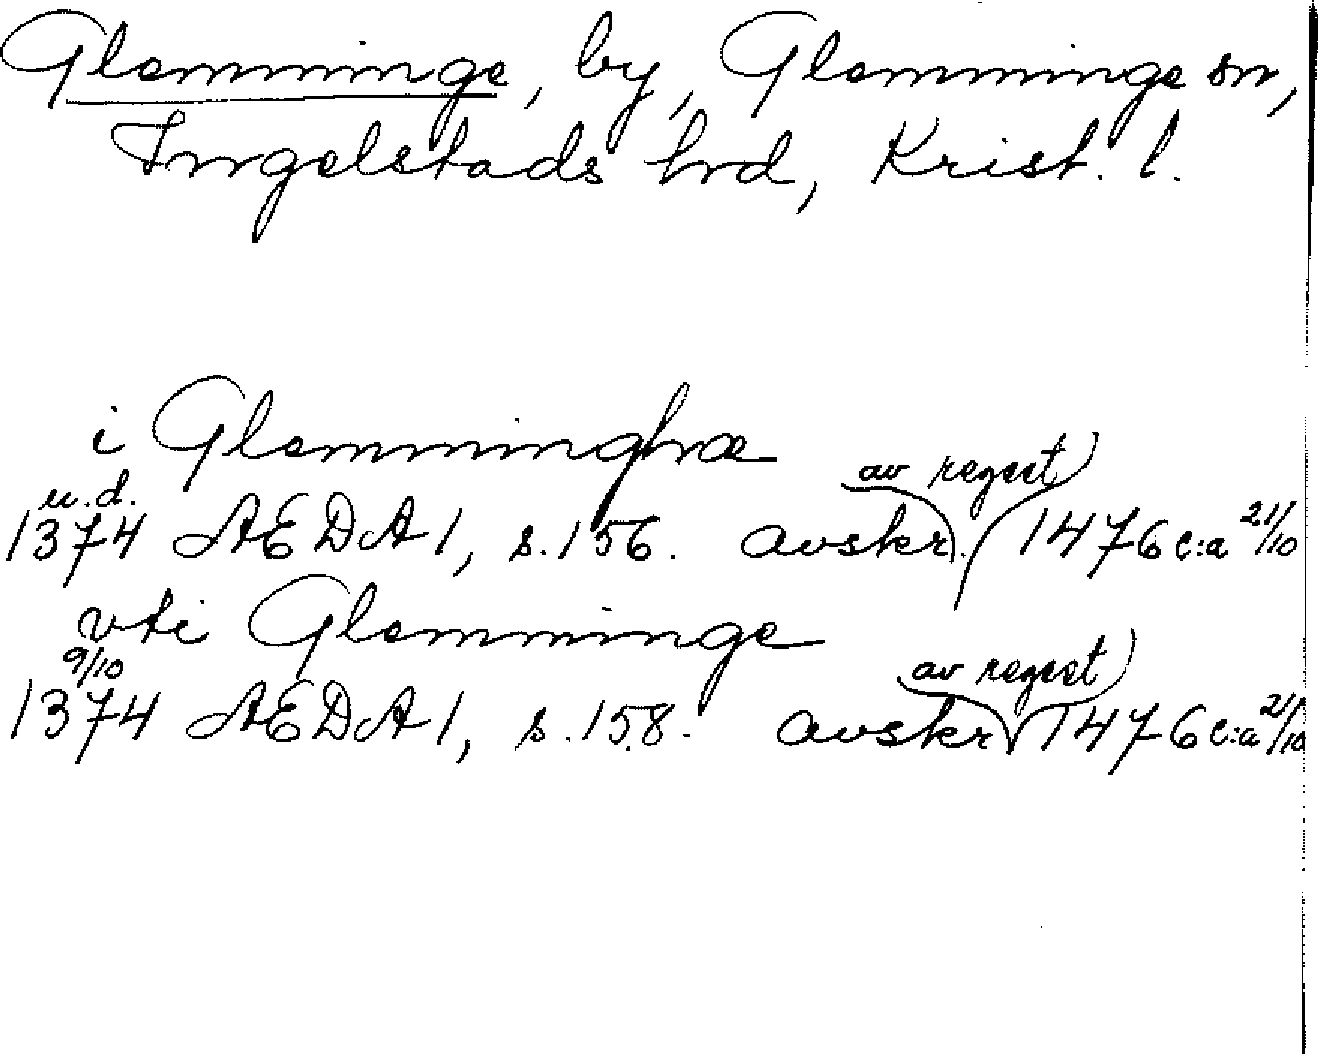 Glemminge, by, Glemminge sn,
Ingelstads hrd, Krist. l.
i Glemminghæ
u.d. av regest)
1374 AEDA 1, s. 156. avskr. 1476 c:a 21/10
vti Glemminge
9/10 av regest)
1374 AEDA 1, s. 158. avskr 1476 c:a 21/10